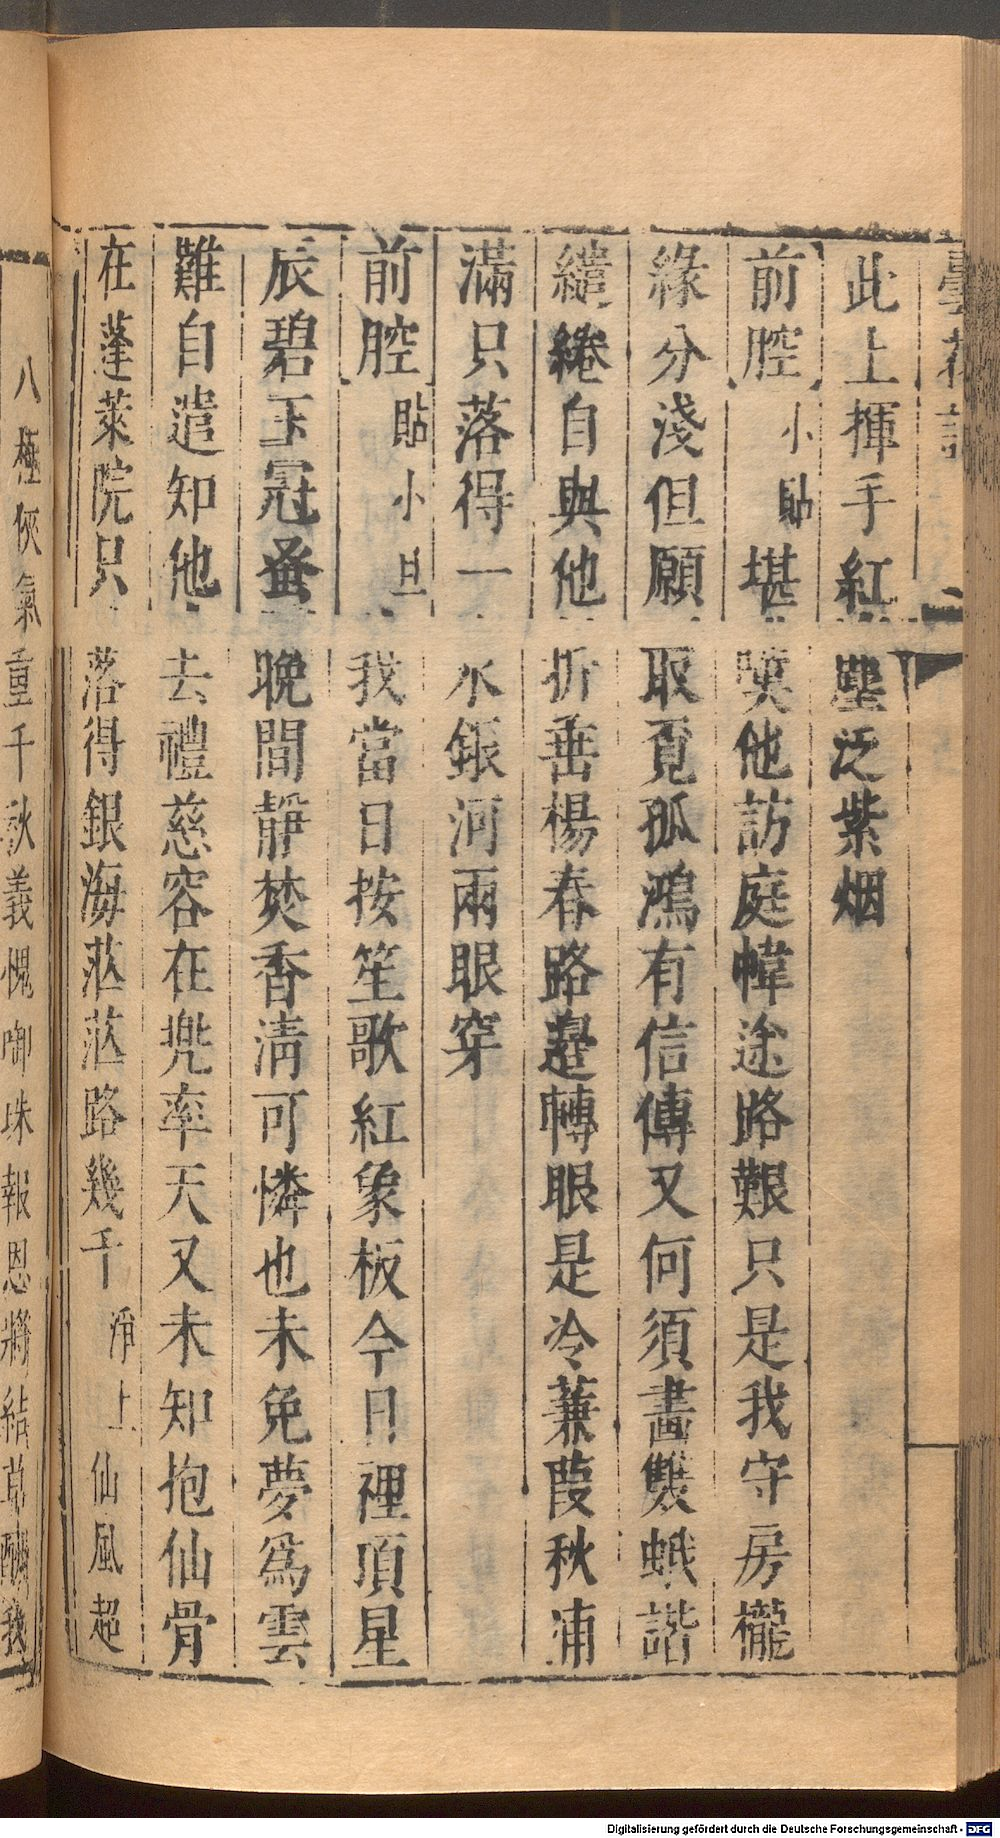 曇花記
此上揮手紅塵泛紫烟
前腔 小貼 堪嘆他訪庭幃途路艱只是我守房櫳
緣分淺但願取覓孤鴻有信傳又何須畫雙蛾諧
繾綣自與他折垂楊春路邊轉眼是冷蒹葭秋浦
滿只落得一水銀河兩眼穿
前腔 貼小旦 我當日按笙歌紅象板今日裡頂星
辰碧玉冠蚤晚間靜焚香清可憐也未免夢爲雲
難自遣知他去禮慈容在兜率天又未知抱仙骨
在蓬萊院只落得銀海茫茫路幾千 淨上 仙風超
八極俠氣重千秋義愧啣珠報恩將結草酬我
Digitalisierung gefördert durch die Deutsche Forschungsgemeinschaft - DFG